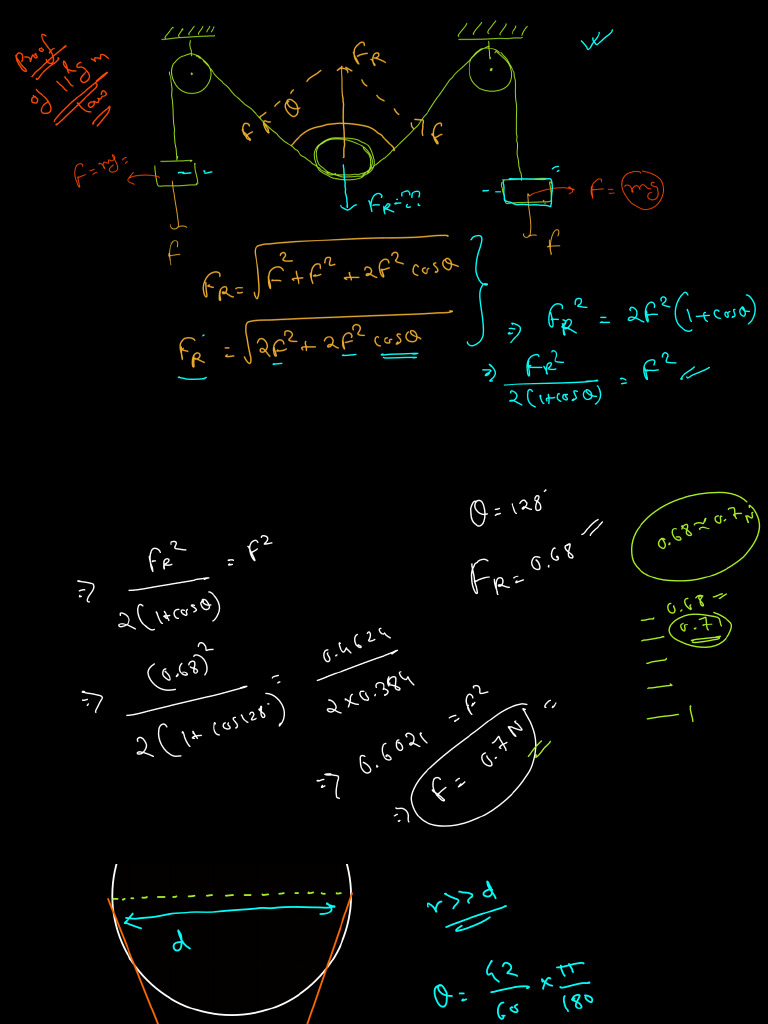 Proof
of ||gm
law
F_R
θ
F
F
F = mg =
F_R = ??
F = mg
F
F
F_R = √(F² + F² + 2F² cosθ)
F_R = √(2F² + 2F² cosθ)
⇒ F_R² = 2F²(1+cosθ)
⇒ F_R² / 2(1+cosθ) = F²
θ = 128°
F_R = 0.68
0.68 ≈ 0.7 N
0.68 =
0.71
1
⇒ F_R² / 2(1+cosθ) = F²
⇒ (0.68)² / 2(1+cos128°) = 0.4624 / 2×0.384
⇒ 0.6021 = F²
⇒ F = 0.7 N
d
r >> d
θ = 42/60 × π/180